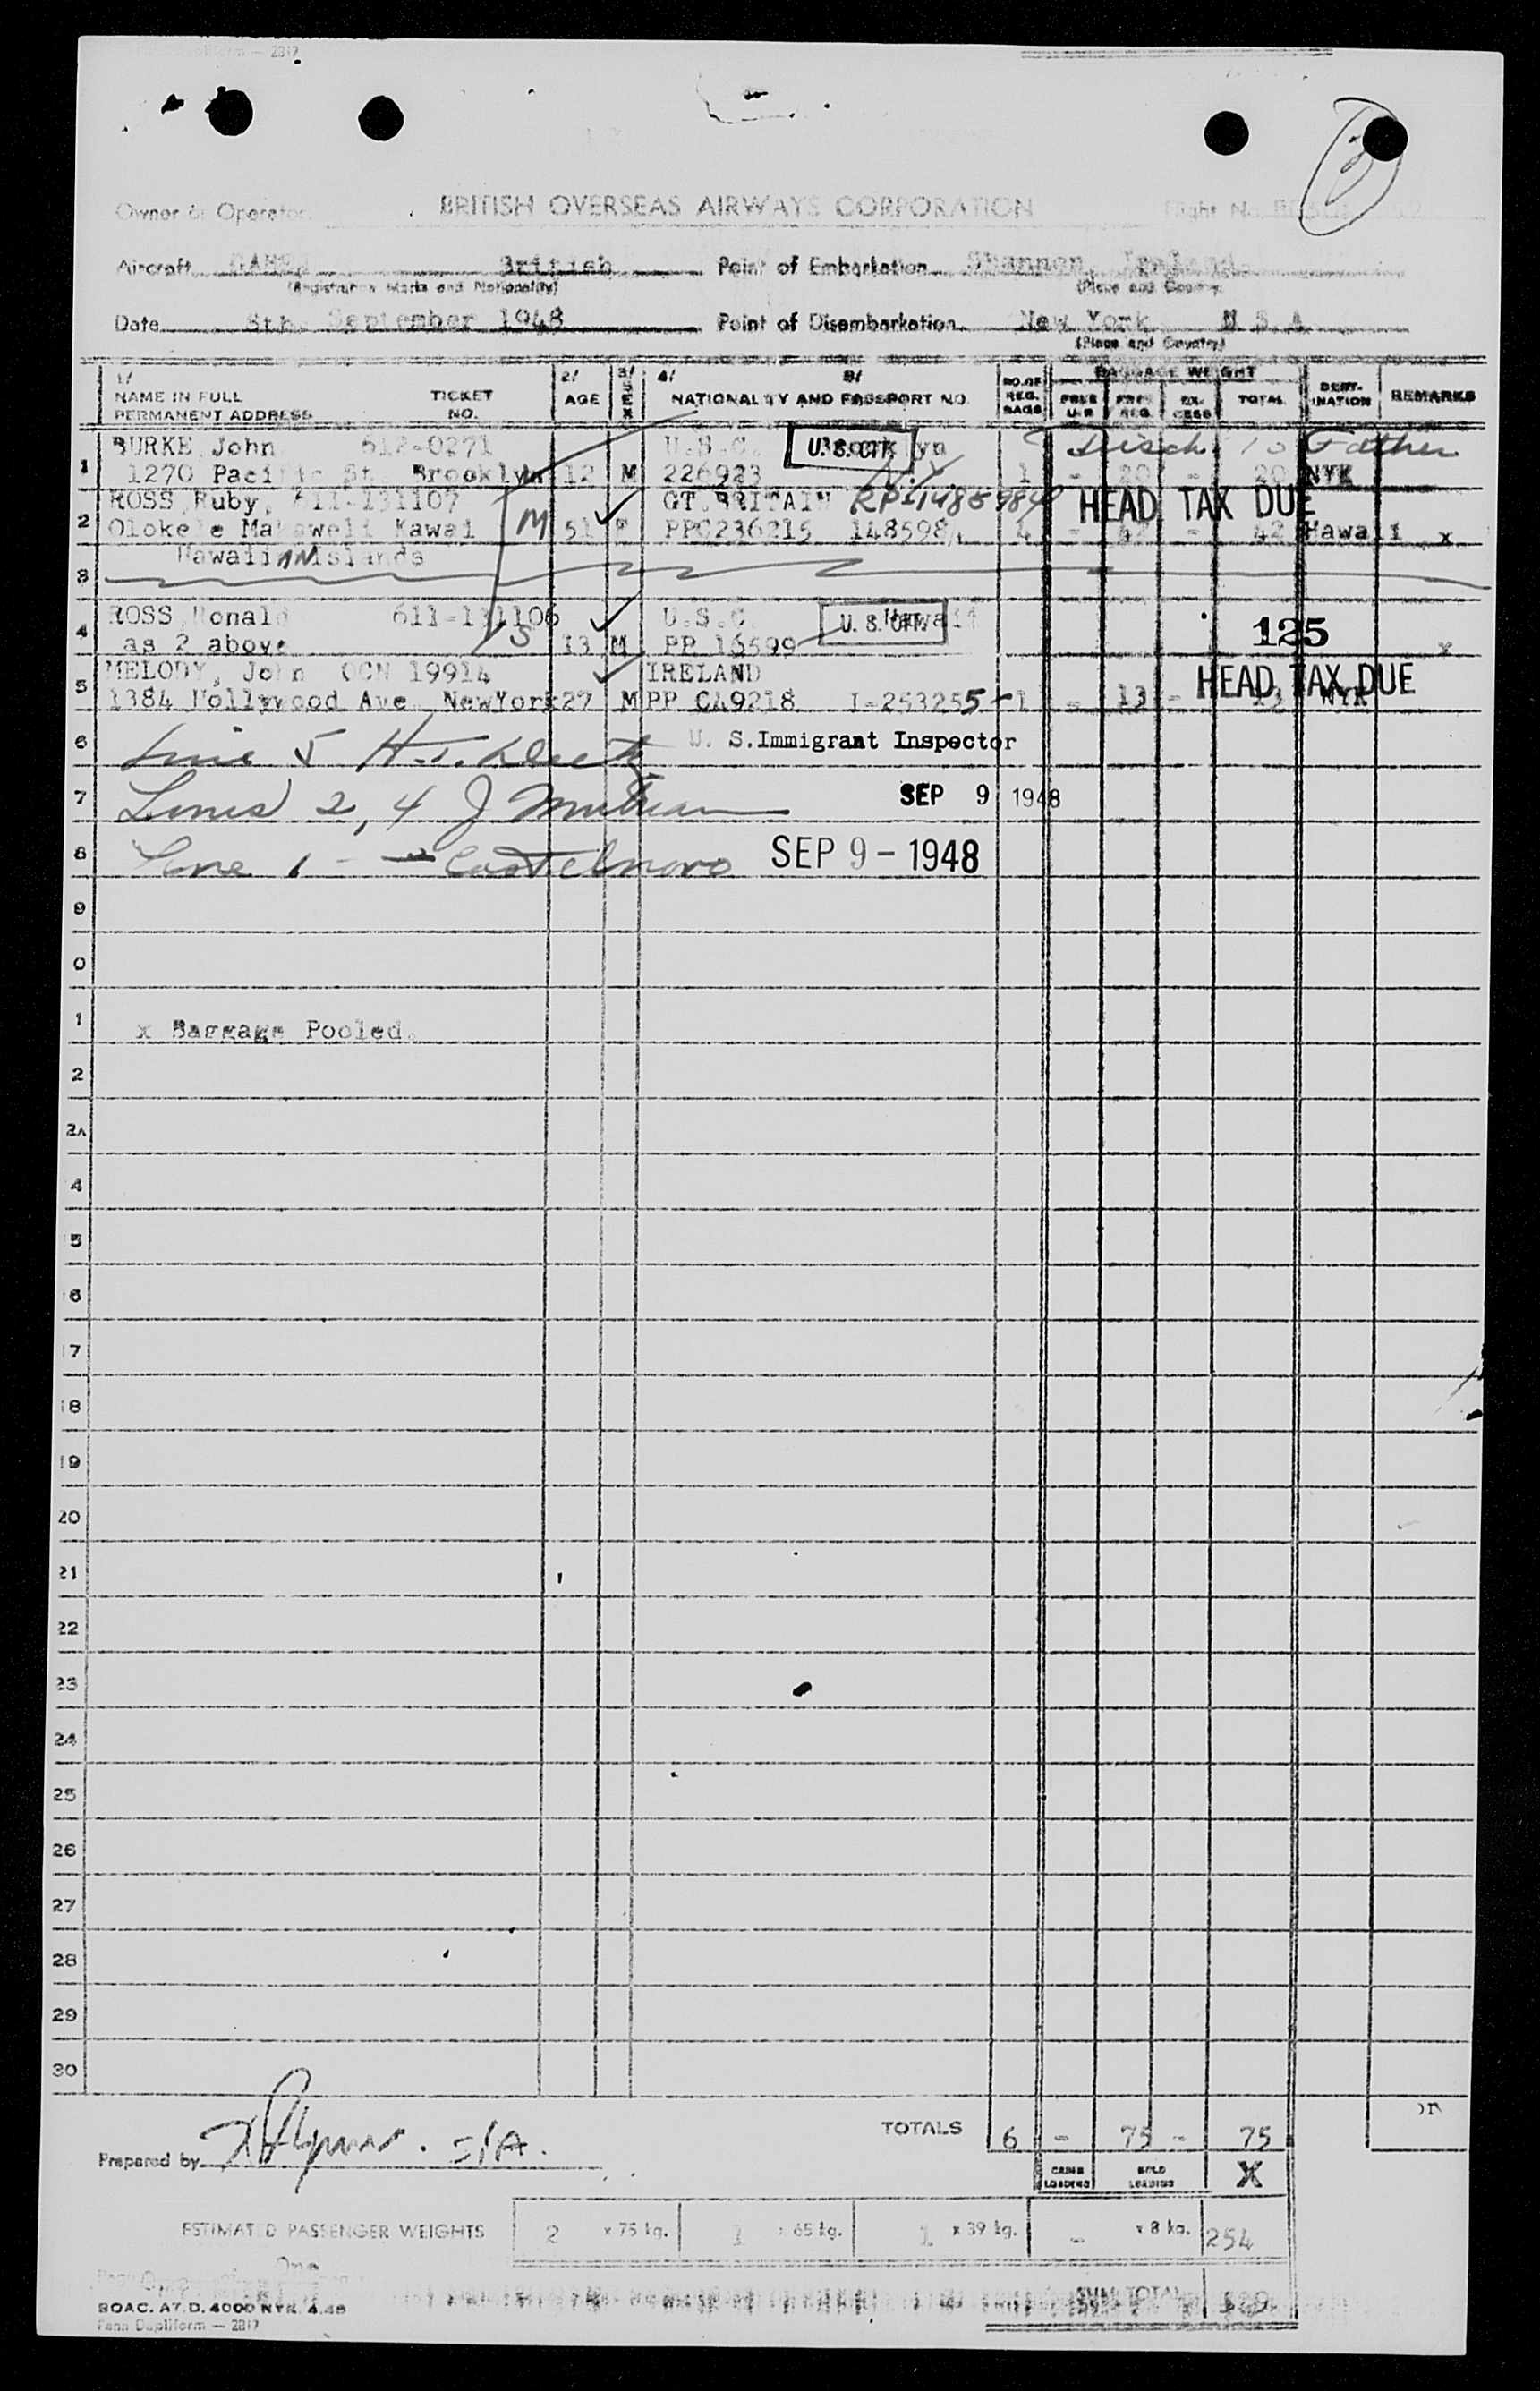 Owner or Operator BRITISH OVERSEAS AIRWAYS CORPORATION Flight No.
Aircraft British Point of Embarkation Shannon, Ireland
(Registration Marks and Nationality) (Place and Country)
Date 8th September 1948 Point of Disembarkation New York U S A
(Place and Country)
1/ NAME IN FULL PERMANENT ADDRESS TICKET NO. 2/ AGE 3/ SEX 4/ 5/ NATIONALITY AND PASSPORT NO. NO.OF REG. BAGS BAGGAGE WEIGHT FREE U-R FREE REG. EX-CESS TOTAL DEST-INATION REMARKS
BURKE John 612-0271 U.S.C. Brooklyn U.S. CIT. Disch to Father
1 1270 Pacific St Brooklyn 12 M 226923 N.Y. 1 - 20 - 20 NYK
ROSS Ruby, 611-131107 GT.BRITAIN RP-1485984 HEAD TAX DUE
2 Olokele Makaweli Kawai M 51 F PPC236215 148598 4 - 42 - 42 Hawaii x
Hawaiian Islands
3
ROSS Ronald 611-131106 U.S.C. Hawaii U. S. CIT. 125
4 as 2 above S 13 M PP 16599 x
MELODY, John OCN 19914 IRELAND HEAD TAX DUE
5 1384 Hollywood Ave NewYork 27 M PP C49218 I-253255 1 - 13 - 13 NYK
6 Line 5 H.T. U. S. Immigrant Inspector
7 Lines 2, 4 J SEP 9 1948
8 Line 1 - Castelnovo SEP 9 - 1948
9
0
1 x Baggage Pooled.
2
2A
4
5
6
17
18
19
20
21
22
23
24
25
26
27
28
29
30
TOTALS 6 - 75 - 75
Prepared by
CABIN LOADING HOLD LOADING X
ESTIMATED PASSENGER WEIGHTS 2 x 75 kg. 1 x 65 kg. 1 x 39 kg. - x 8 kg. 254
SUM TOTAL
BOAC. A7.D. 4000 NYK 4.48
Penn Dupliform — 2817